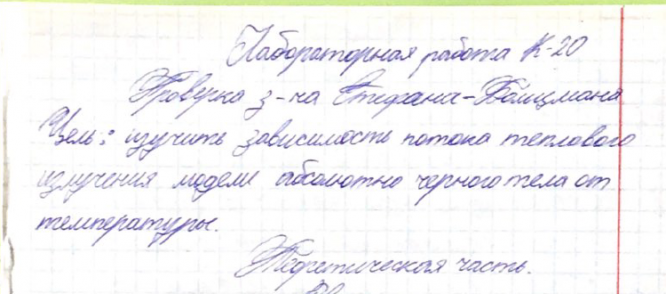 Лабораторная работа К-20
Проверка з-на Стефана-Больцмана
Цель: изучить зависимость потока теплового
излучения модели абсолютно черного тела от
температуры.
Теоретическая часть.